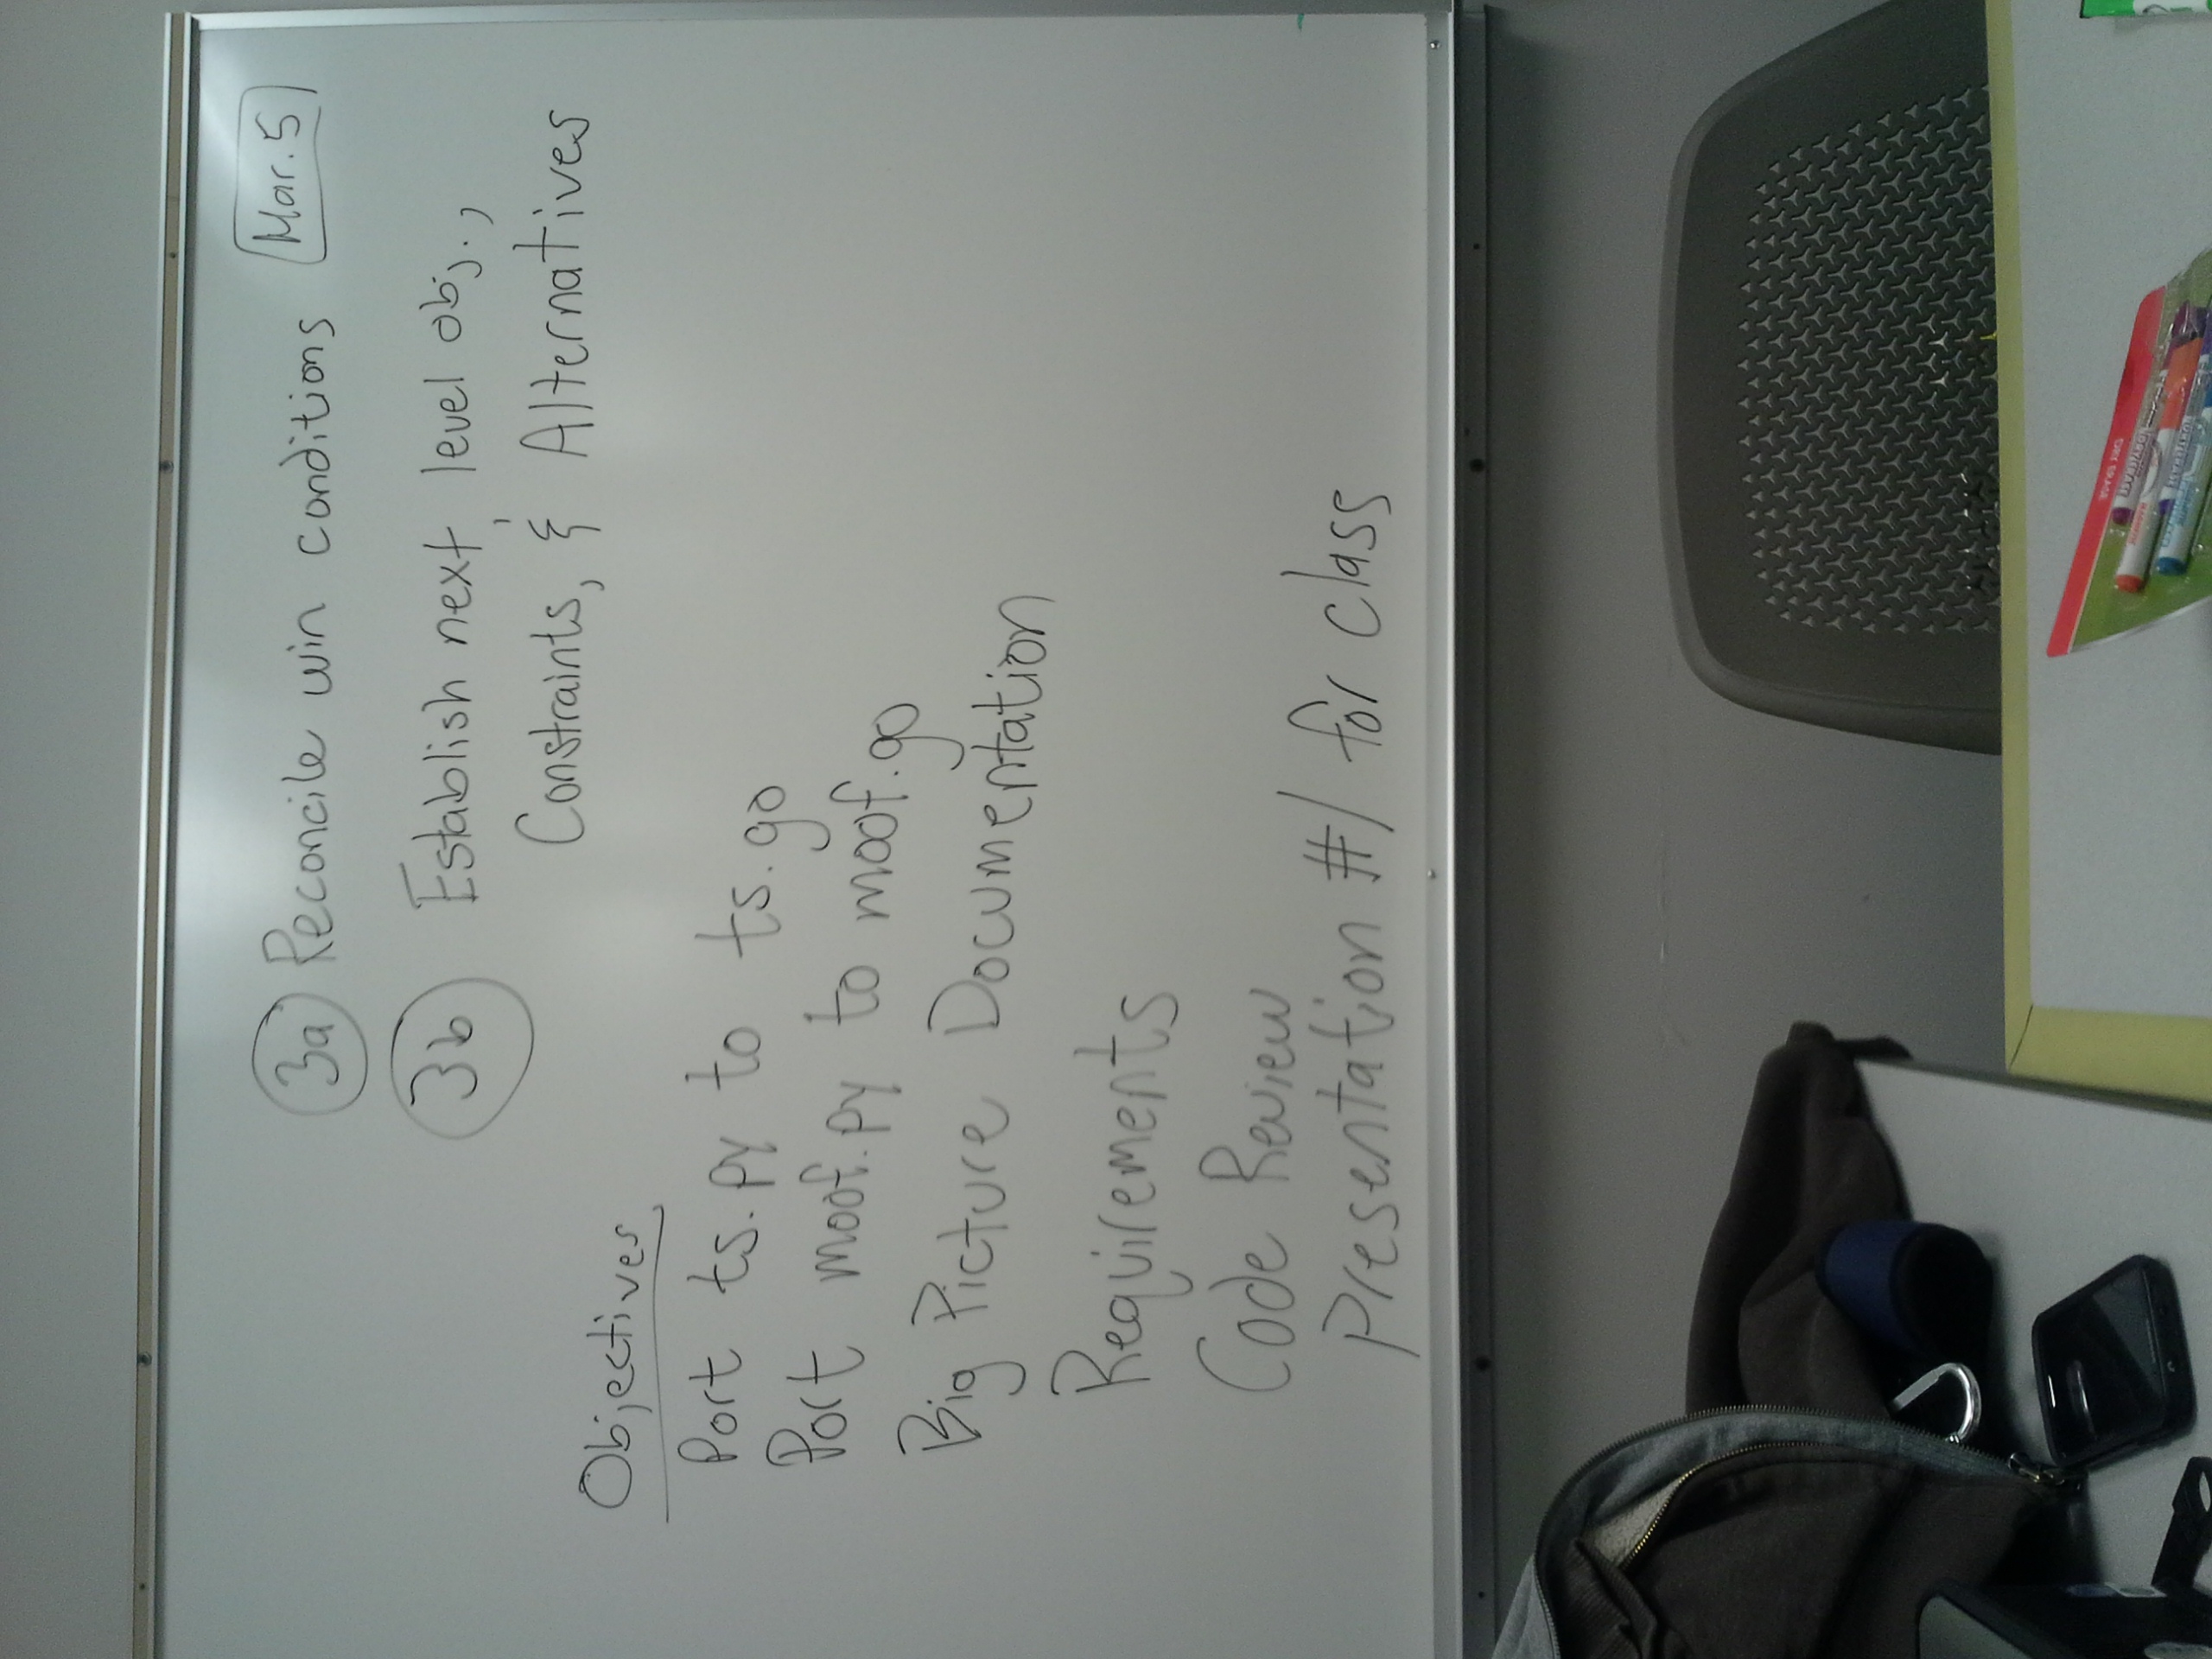 3a Reconcile win conditions Mar. 5
3b Establish next level obj.,
Constraints, & Alternatives
Objectives
Port ts.py to ts.go
Port moof.py to moof.go
Big Picture Documentation
Requirements
Code Review
Presentation #1 for class
DRY ERASE